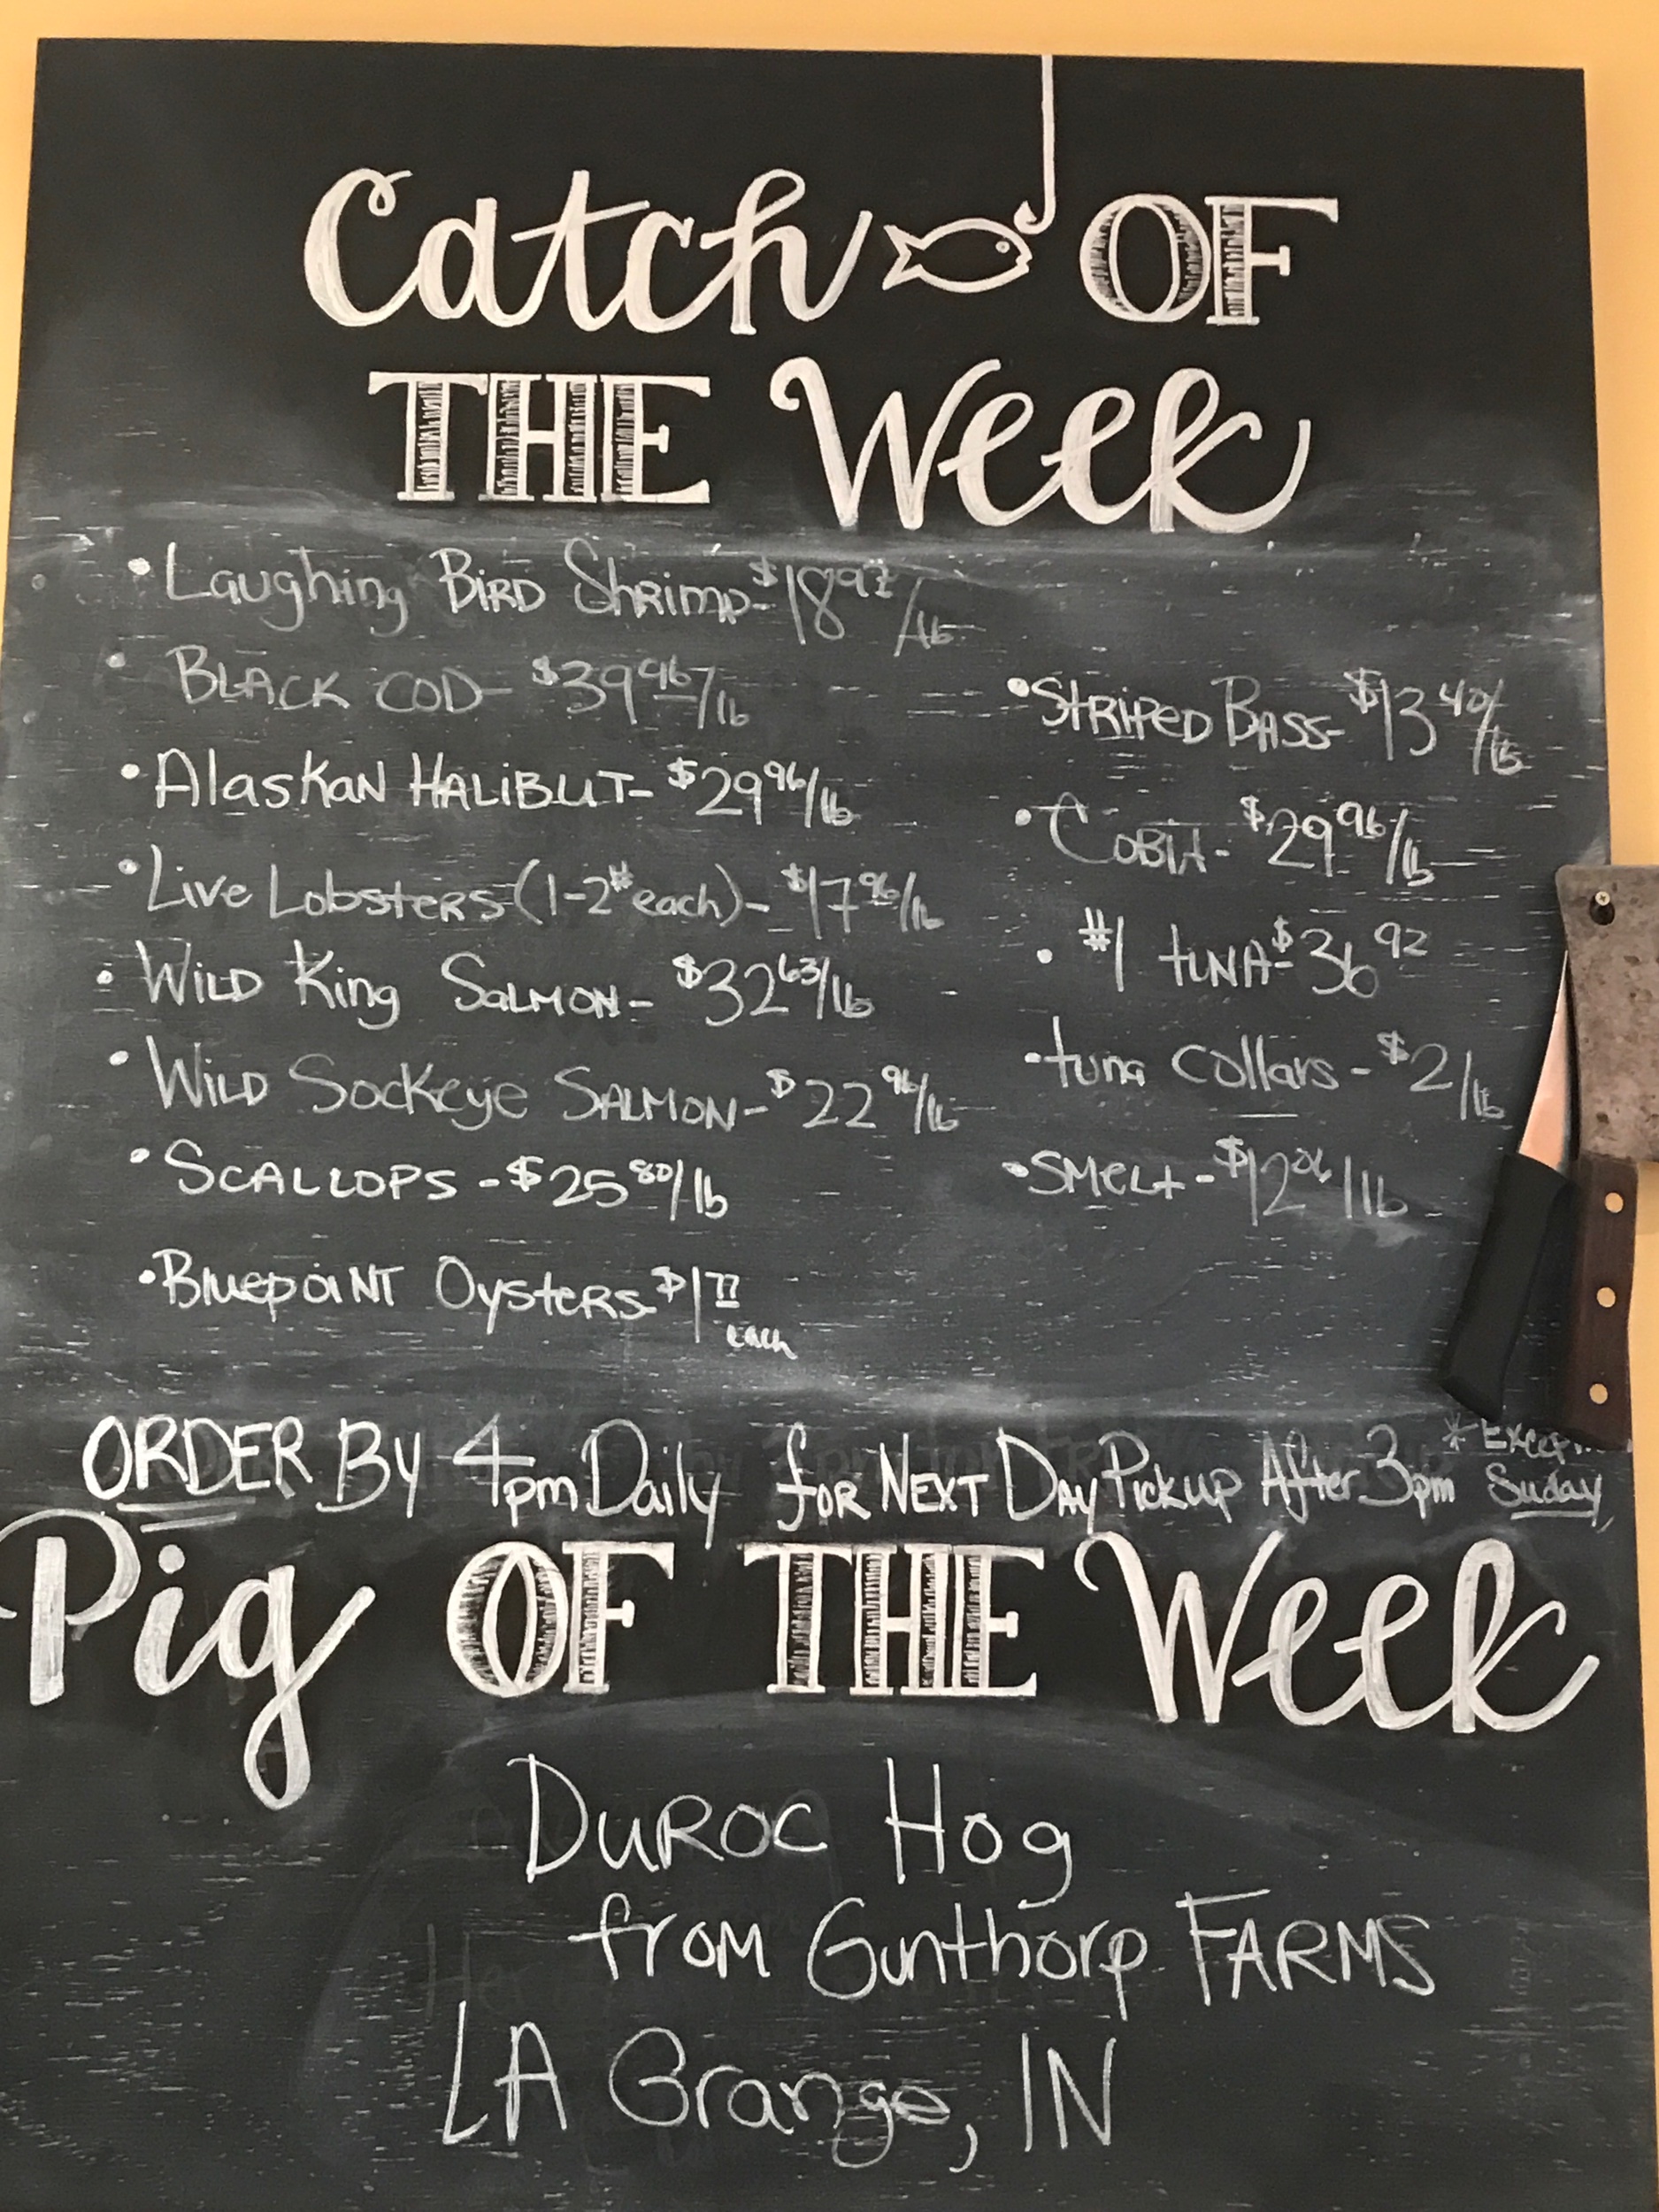 Catch OF
THE Week
• Laughing Bird Shrimp- $18.92/lb
• Black Cod- $39.96/lb
• Alaskan Halibut- $29.96/lb
• Live Lobsters (1-2# each)- $17.96/lb
• Wild King Salmon- $32.63/lb
• Wild Sockeye Salmon- $22.96/lb
• Scallops - $25.80/lb
• Bluepoint Oysters- $1.77
each
• Striped Bass- $13.40/lb
• Cobia- $29.96/lb
• #1 tuna- $36.92
• tuna collars - $2/lb
• Smelt - $12.06/lb
ORDER By 4pm Daily for Next Day Pickup After 3pm
Suday
Pig OF THE Week
Duroc Hog
from Gunthorp Farms
LA Grange, IN